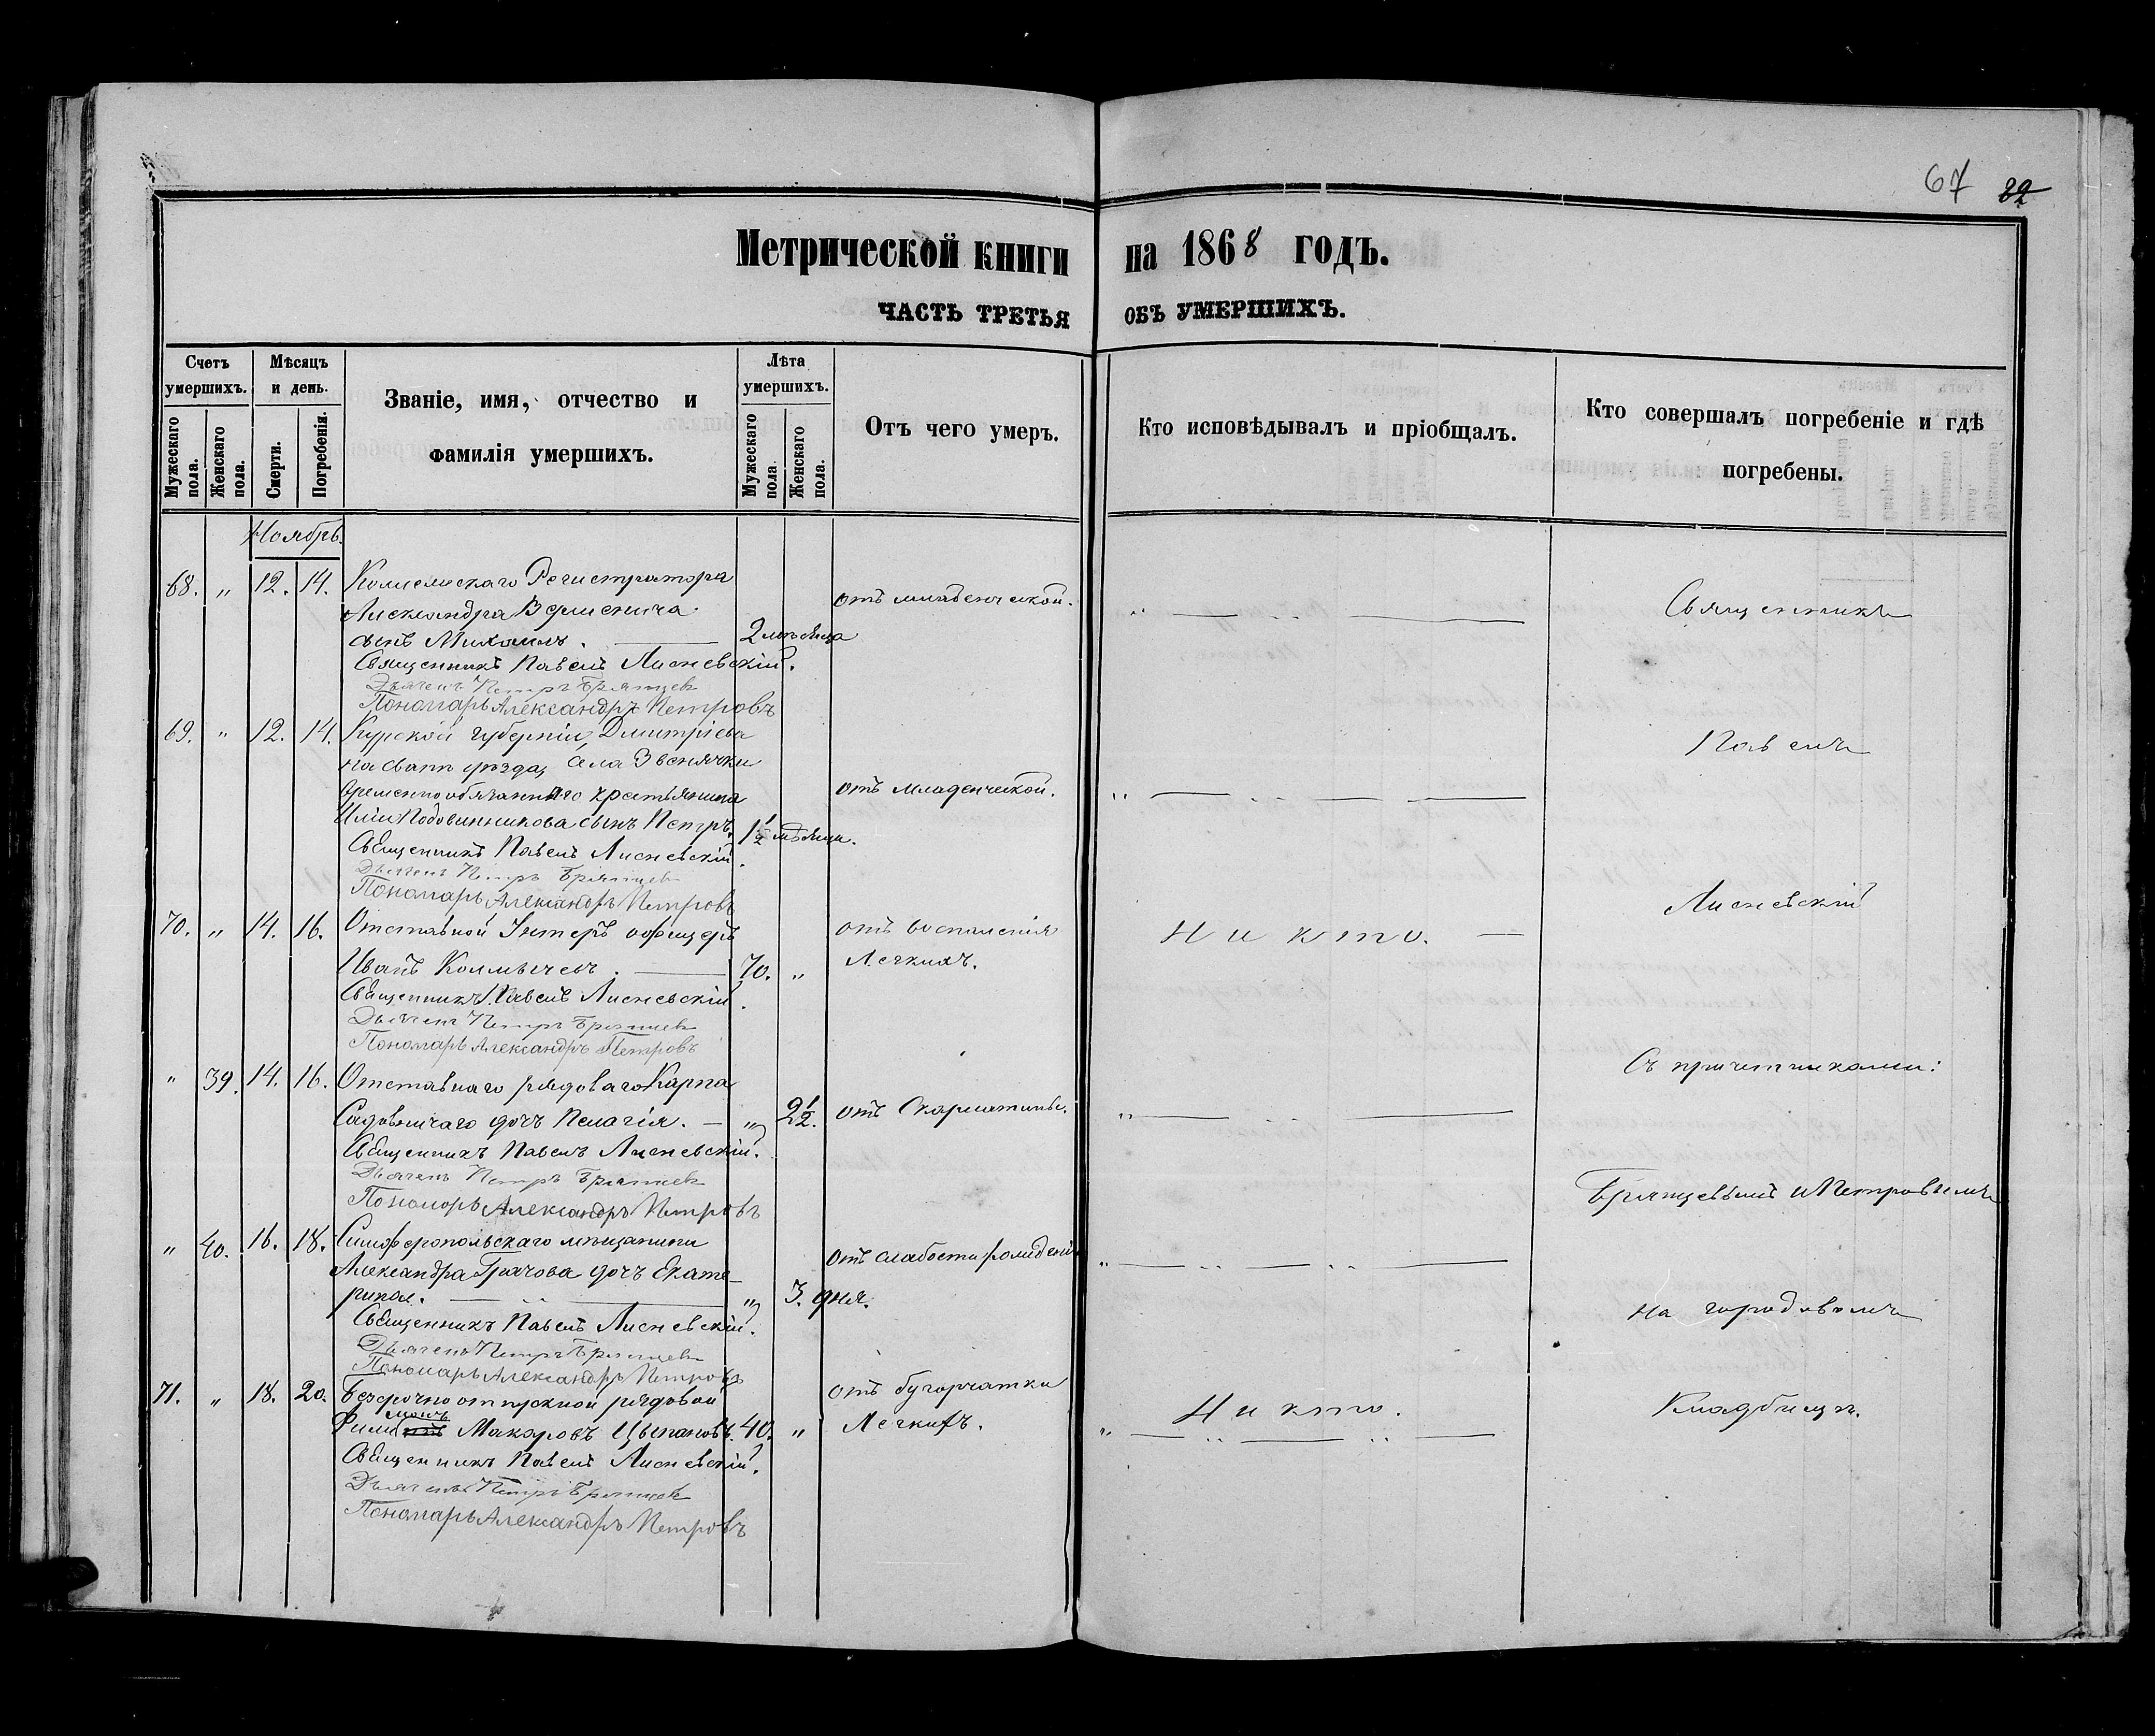 67 82
Метрической книги на 1868 годъ.
ЧАСТЬ ТРЕТЬЯ ОБЪ УМЕРШИХЪ.
Счетъ умершихъ.
Мужескаго пола.
Женскаго пола.
Мѣсяцъ и день.
Смерти.
Погребенія.
Званіе, имя, отчество и
фамилія умершихъ.
Лѣта умершихъ.
Мужескаго пола.
Женскаго пола.
Отъ чего умеръ.
Кто исповѣдывалъ и пріобщалъ.
Кто совершалъ погребеніе и гдѣ
погребены.
Ноябрь.
68. „ 12. 14. Коллежскаго Регистратора
Александра
сынъ Михаилъ. 2 мѣсяца отъ младенческой.
Священникъ Павелъ Лисневскій.
Дьячекъ Петръ Брянцевъ
Пономарь Александръ Петровъ
69. „ 12. 14. Курской губерніи, Дмитріева
на Свапѣ уѣзда, села Звенячки
временно обязаннаго крестьянина отъ младенческой.
Иліи Подовинникова сынъ Петръ. 1½ мѣсяца.
Священникъ Павелъ Лисневскій.
Дьячекъ Петръ Брянцевъ
Пономарь Александръ Петровъ
70. „ 14. 16. Отставной Унтеръ офицеръ отъ воспаленія
Иванъ Колмычевъ. 70. „ Легкихъ.
Никто.
Священникъ Павелъ Лисневскій.
Дьячекъ Петръ Брянцевъ
Пономарь Александръ Петровъ
„ 39. 14. 16. Отставнаго рядоваго Карпа
Садовничаго дочь Пелагія. „ 2½. отъ Скарлатины.
Священникъ Павелъ Лисневскій.
Дьячекъ Петръ Брянцевъ
Пономарь Александръ Петровъ
„ 40. 16. 18. Симферопольскаго мѣщанина отъ слабости рожденія
Александра Грачова дочь Екате-
рина. „ 3. дня.
Священникъ Павелъ Лисневскій.
Дьячекъ Петръ Брянцевъ
Пономарь Александръ Петровъ
71. „ 18. 20. Безсрочно отпускной рядовой отъ бугорчатки
Макаровъ Цыпановъ. 40. „ Легкихъ.
Никто.
Священникъ Павелъ Лисневскій.
Дьячекъ Петръ Брянцевъ
Пономарь Александръ Петровъ
Священникъ
Павелъ
Лисневскій
Съ причетниками:
Брянцевымъ и Петровымъ
на городовомъ
Кладбищѣ.